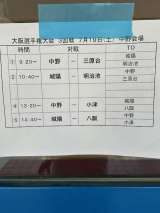 大阪選手権大会 3回戦 7月19日(土) 中野会場
時間 対戦 TO
① 9:20～ 中野 － 三原台 城陽
明治池
② 10:40～ 城陽 － 明治池 中野
三原台
④ 13:20～ 中野 － 小津 城陽
八阪
⑤ 14:40～ 城陽 － 八阪 中野
小津